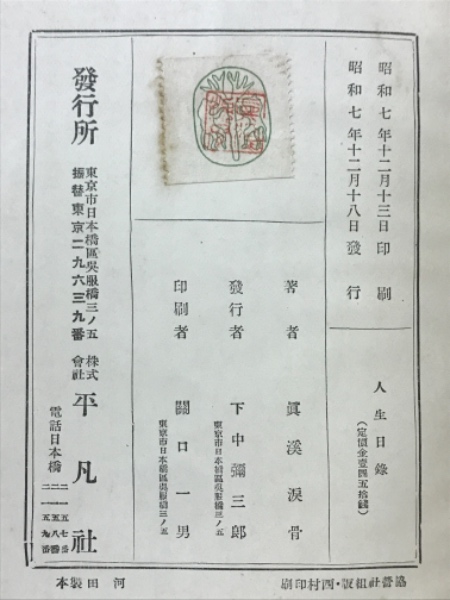 昭和七年十二月十三日印刷
昭和七年十二月十八日發行
人生日錄
(定價金壹圓五拾錢)
著者 眞溪涙骨
發行者 下中彌三郎
東京市日本橋區吳服橋三ノ五
印刷者 關口一男
東京市日本橋區吳服橋三ノ五
發行所 株式會社 平凡社
東京市日本橋區吳服橋三ノ五
振替東京二九六三九番
電話日本橋
協營社組版・西村印刷
河田製本